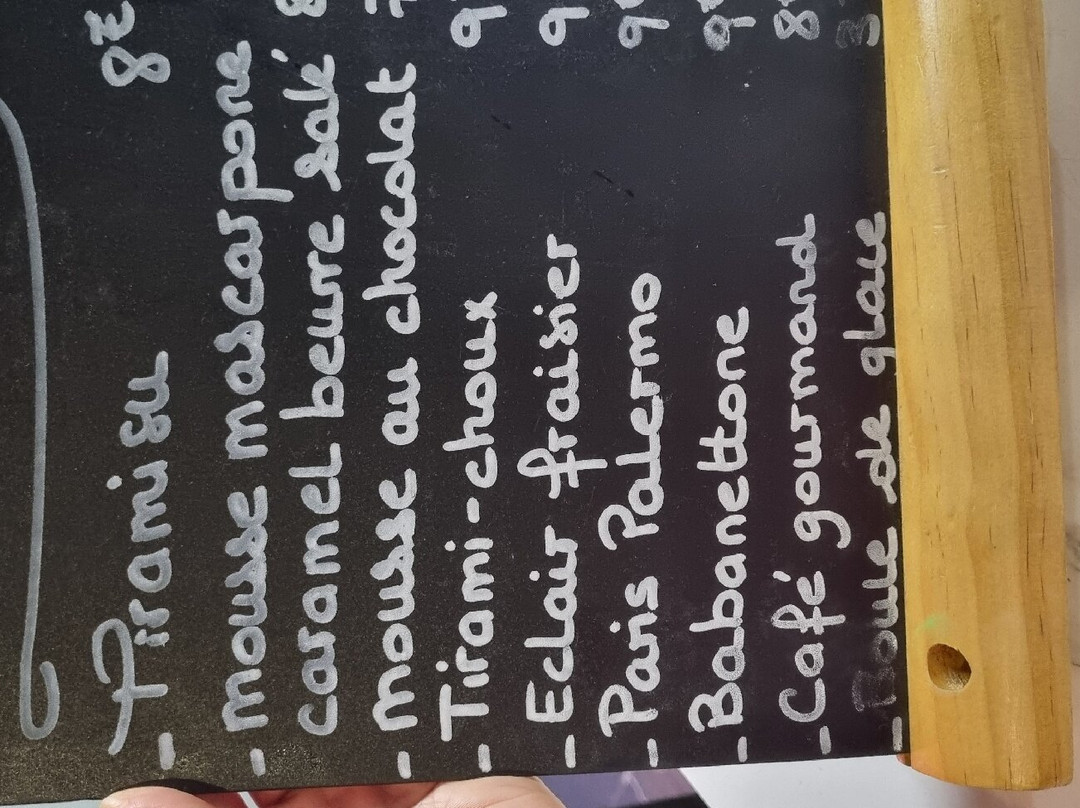 - Tiramisu 8€
- mousse mascarpone
caramel beurre salé 8
- mousse au chocolat 7
- Tirami-choux 9
- Eclair fraisier 9
- Paris Palermo 9
- Babanettone 9
- Café gourmand 8
- Boule de glace 3